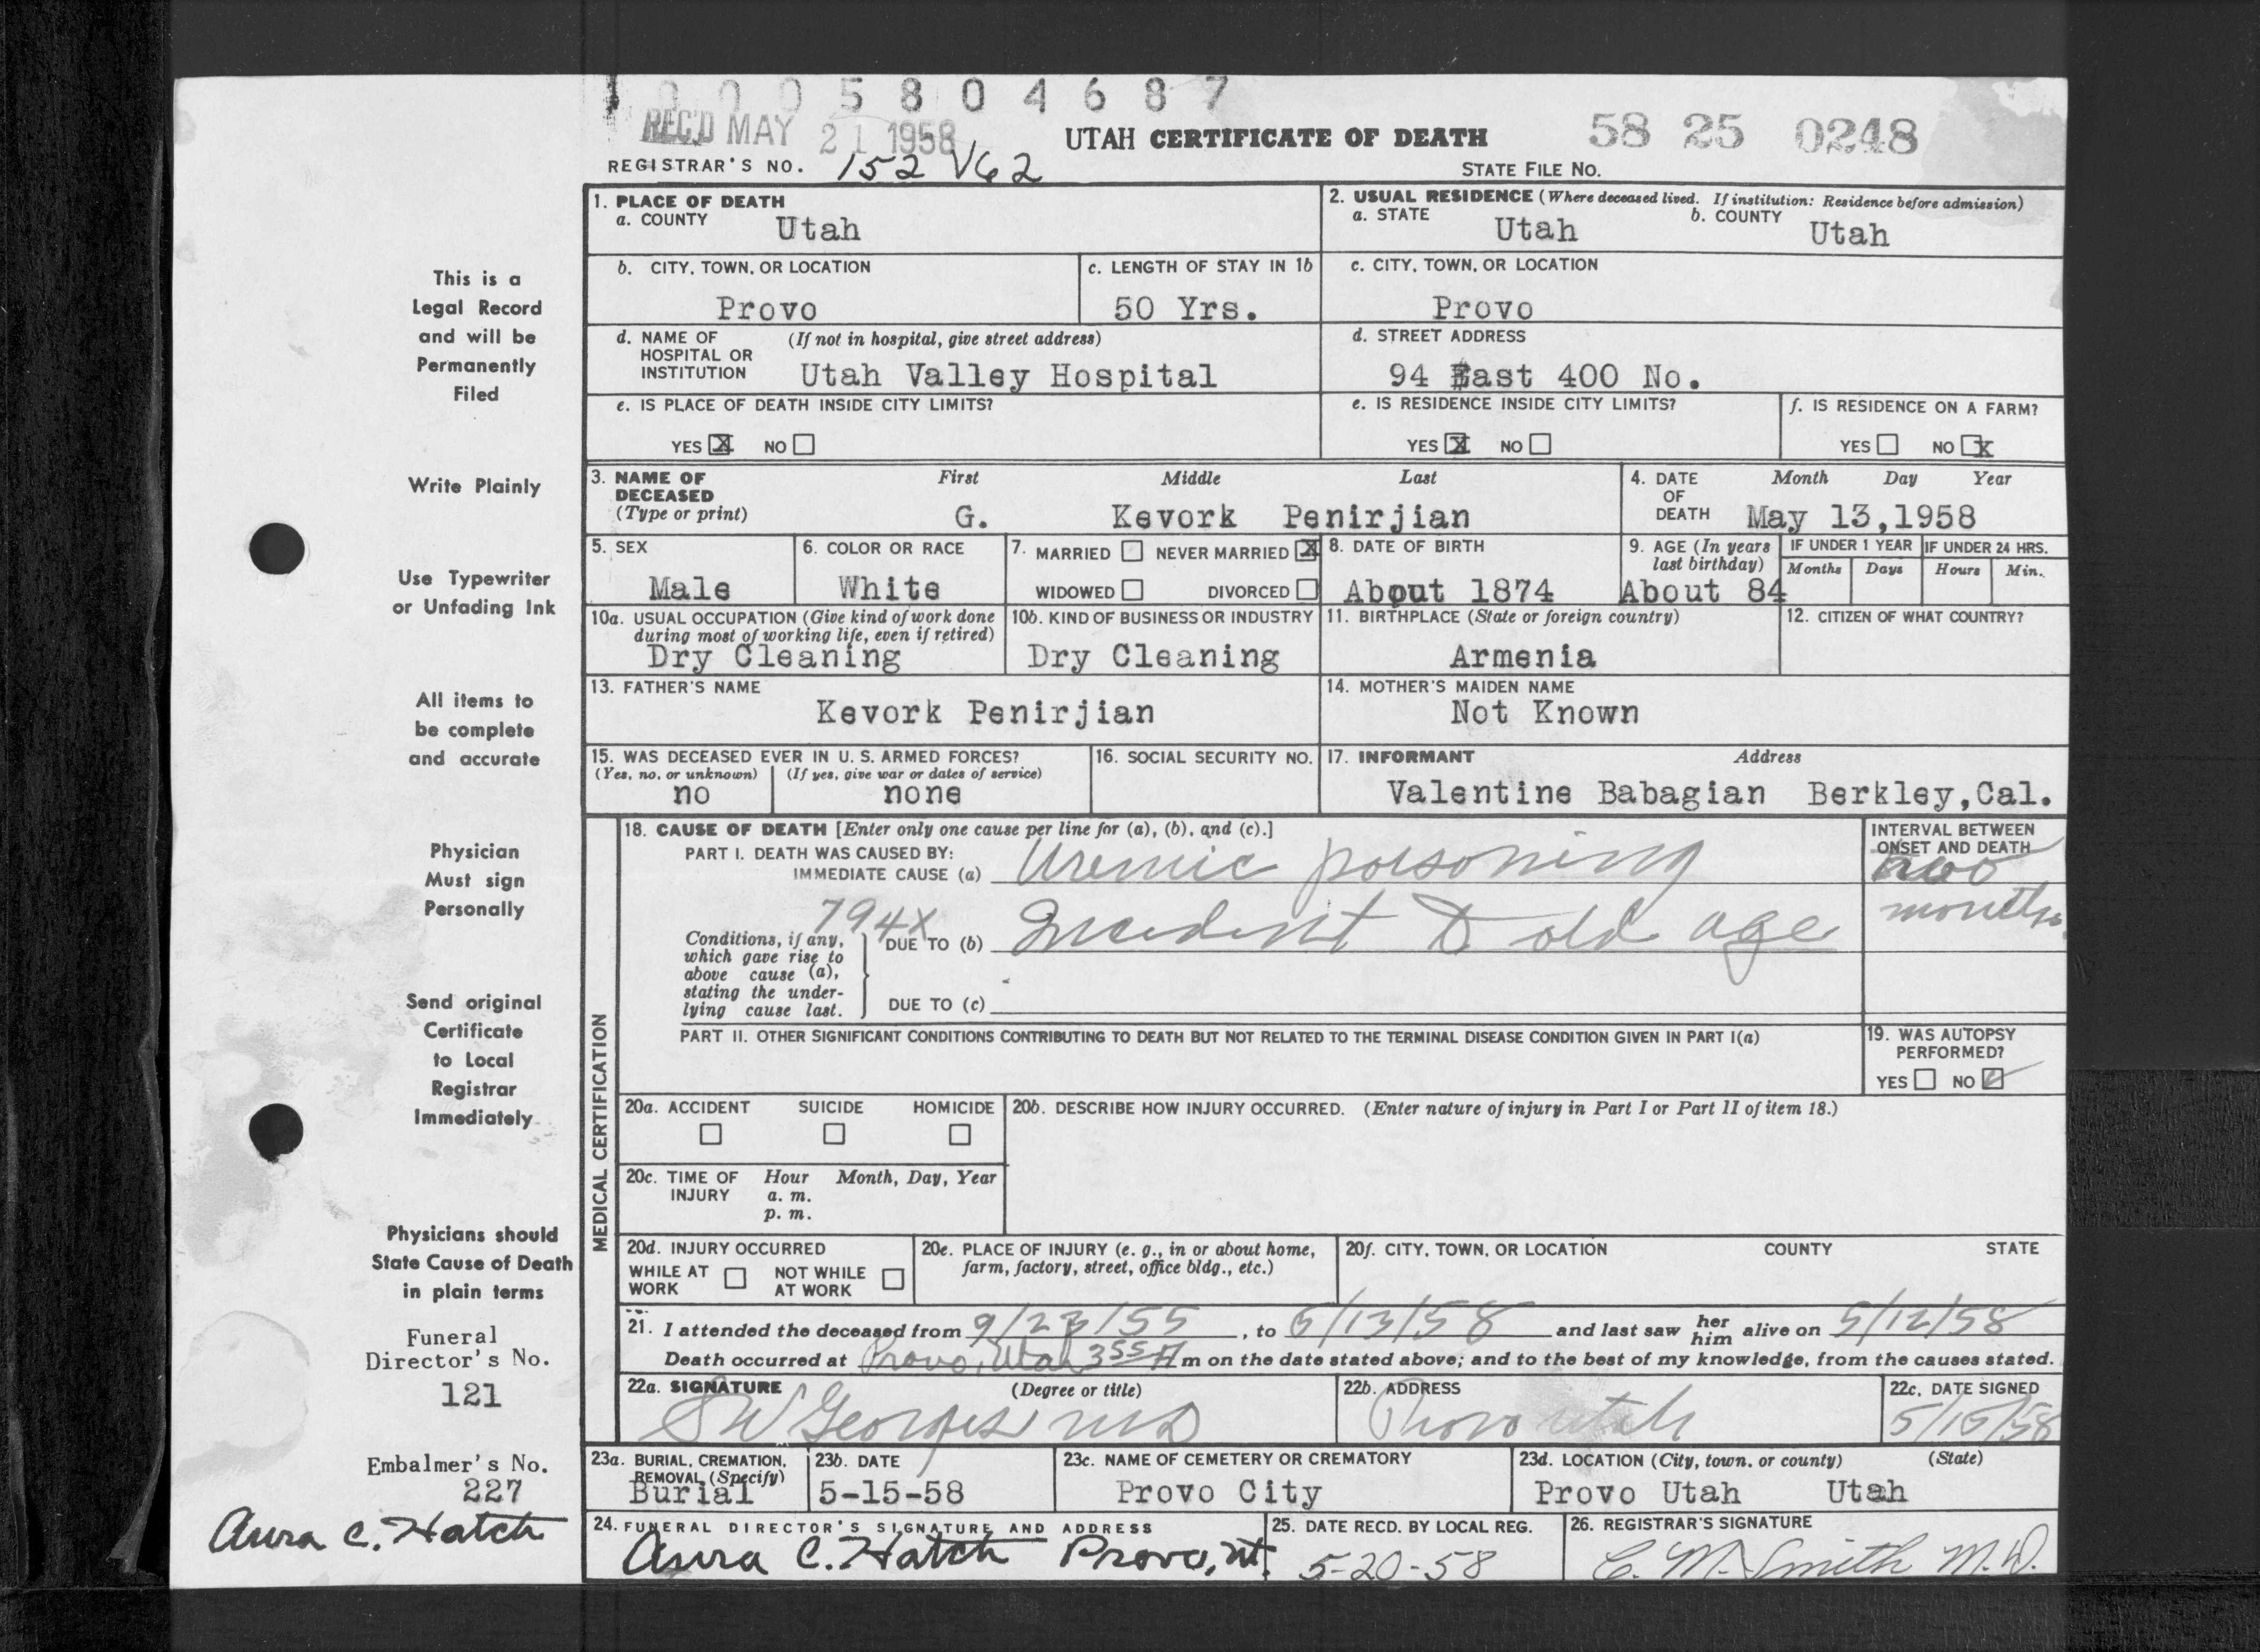 0 0 0 5 8 0 4 6 8 7
REC'D MAY 21 1958
UTAH CERTIFICATE OF DEATH
58 25 0248
REGISTRAR'S NO. 152 V62
STATE FILE NO.
This is a
Legal Record
and will be
Permanently
Filed
Write Plainly
Use Typewriter
or Unfading Ink
All items to
be complete
and accurate
Physician
Must sign
Personally
Send original
Certificate
to Local
Registrar
Immediately
Physicians should
State Cause of Death
in plain terms
Funeral
Director's No.
121
Embalmer's No.
227
Aura C. Hatch
1. PLACE OF DEATH
a. COUNTY Utah
2. USUAL RESIDENCE (Where deceased lived. If institution: Residence before admission)
a. STATE Utah b. COUNTY Utah
b. CITY, TOWN, OR LOCATION
Provo
c. LENGTH OF STAY IN 1b
50 Yrs.
c. CITY, TOWN, OR LOCATION
Provo
d. NAME OF HOSPITAL OR INSTITUTION (If not in hospital, give street address)
Utah Valley Hospital
d. STREET ADDRESS
94 East 400 No.
e. IS PLACE OF DEATH INSIDE CITY LIMITS?
YES X NO
e. IS RESIDENCE INSIDE CITY LIMITS?
YES X NO
f. IS RESIDENCE ON A FARM?
YES NO X
3. NAME OF DECEASED (Type or print)
First Middle Last
G. Kevork Penirjian
4. DATE OF DEATH
Month Day Year
May 13,1958
5. SEX
Male
6. COLOR OR RACE
White
7. MARRIED NEVER MARRIED X
WIDOWED DIVORCED
8. DATE OF BIRTH
About 1874
9. AGE (In years last birthday)
About 84
IF UNDER 1 YEAR IF UNDER 24 HRS.
Months Days Hours Min.
10a. USUAL OCCUPATION (Give kind of work done during most of working life, even if retired)
Dry Cleaning
10b. KIND OF BUSINESS OR INDUSTRY
Dry Cleaning
11. BIRTHPLACE (State or foreign country)
Armenia
12. CITIZEN OF WHAT COUNTRY?
13. FATHER'S NAME
Kevork Penirjian
14. MOTHER'S MAIDEN NAME
Not Known
15. WAS DECEASED EVER IN U. S. ARMED FORCES?
(Yes, no, or unknown) (If yes, give war or dates of service)
no none
16. SOCIAL SECURITY NO.
17. INFORMANT Address
Valentine Babagian Berkley,Cal.
MEDICAL CERTIFICATION
18. CAUSE OF DEATH [Enter only one cause per line for (a), (b), and (c).]
PART I. DEATH WAS CAUSED BY:
IMMEDIATE CAUSE (a) Uremic poisoning
INTERVAL BETWEEN ONSET AND DEATH
two
months
794X
Conditions, if any, which gave rise to above cause (a), stating the underlying cause last.
DUE TO (b) Incident to old age
DUE TO (c)
PART II. OTHER SIGNIFICANT CONDITIONS CONTRIBUTING TO DEATH BUT NOT RELATED TO THE TERMINAL DISEASE CONDITION GIVEN IN PART I(a)
19. WAS AUTOPSY PERFORMED?
YES NO ✓
20a. ACCIDENT SUICIDE HOMICIDE
20b. DESCRIBE HOW INJURY OCCURRED. (Enter nature of injury in Part I or Part II of item 18.)
20c. TIME OF INJURY Hour Month, Day, Year
a. m.
p. m.
20d. INJURY OCCURRED
WHILE AT WORK NOT WHILE AT WORK
20e. PLACE OF INJURY (e. g., in or about home, farm, factory, street, office bldg., etc.)
20f. CITY, TOWN, OR LOCATION COUNTY STATE
21. I attended the deceased from 9/23/55, to 5/13/58 and last saw her him alive on 5/12/58
Death occurred at Provo, Utah 3 55 A m on the date stated above; and to the best of my knowledge, from the causes stated.
22a. SIGNATURE (Degree or title)
SW Georges MD
22b. ADDRESS
Provo Utah
22c. DATE SIGNED
5/15/58
23a. BURIAL, CREMATION, REMOVAL (Specify)
Burial
23b. DATE
5-15-58
23c. NAME OF CEMETERY OR CREMATORY
Provo City
23d. LOCATION (City, town, or county) (State)
Provo Utah Utah
24. FUNERAL DIRECTOR'S SIGNATURE AND ADDRESS
Aura C. Hatch Provo, Ut.
25. DATE RECD. BY LOCAL REG.
5-20-58
26. REGISTRAR'S SIGNATURE
C. M. Smith M.D.